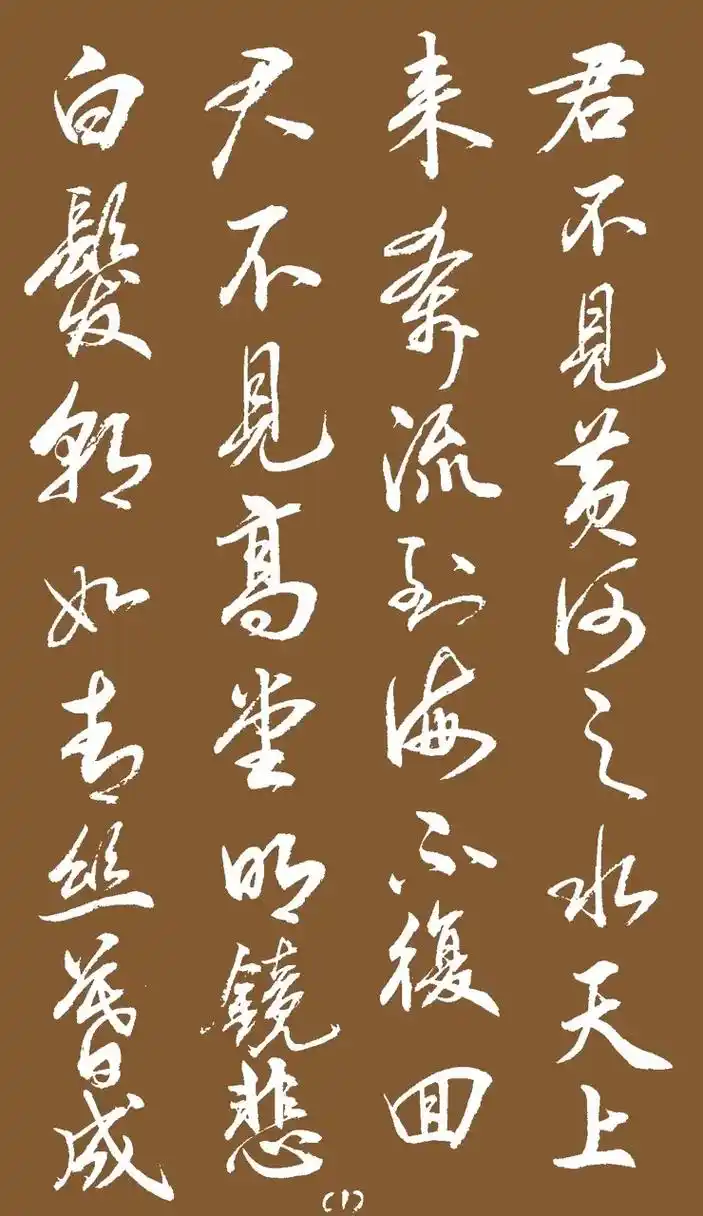 君不見黄河之水天上
来奔流到海不復回
君不見高堂明鏡悲
白髮朝如青丝暮成
(1)